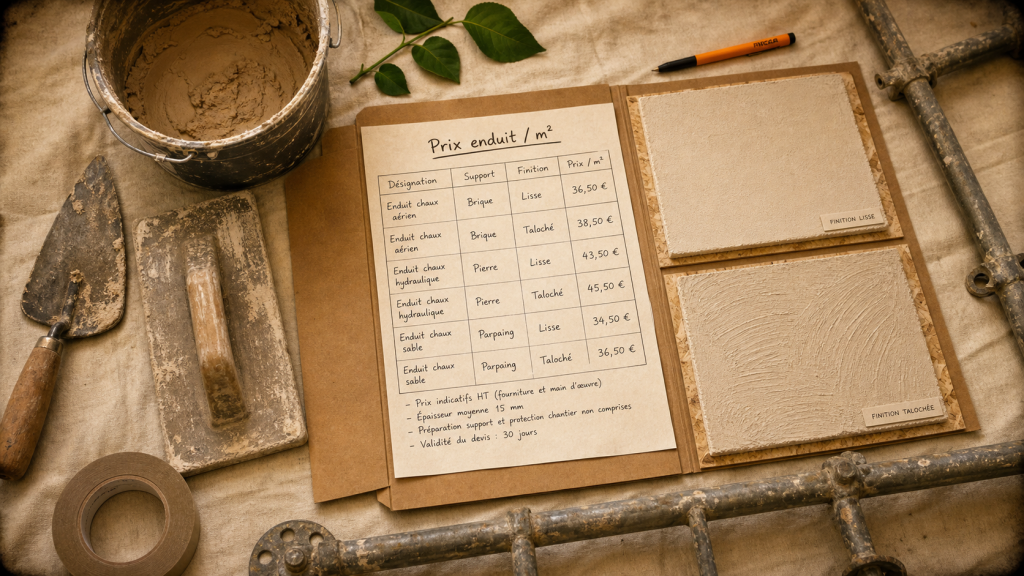 Prix enduit / m²
Désignation Support Finition Prix / m²
Enduit chaux aérien Brique Lisse 36,50 €
Enduit chaux aérien Brique Taloché 38,50 €
Enduit chaux hydraulique Pierre Lisse 43,50 €
Enduit chaux hydraulique Pierre Taloché 45,50 €
Enduit chaux sable Parpaing Lisse 34,50 €
Enduit chaux sable Parpaing Taloché 36,50 €
- Prix indicatifs HT (fourniture et main d'œuvre)
- Épaisseur moyenne 15 mm
- Préparation support et protection chantier non comprises
- Validité du devis : 30 jours
FINITION LISSE
FINITION TALOCHÉE